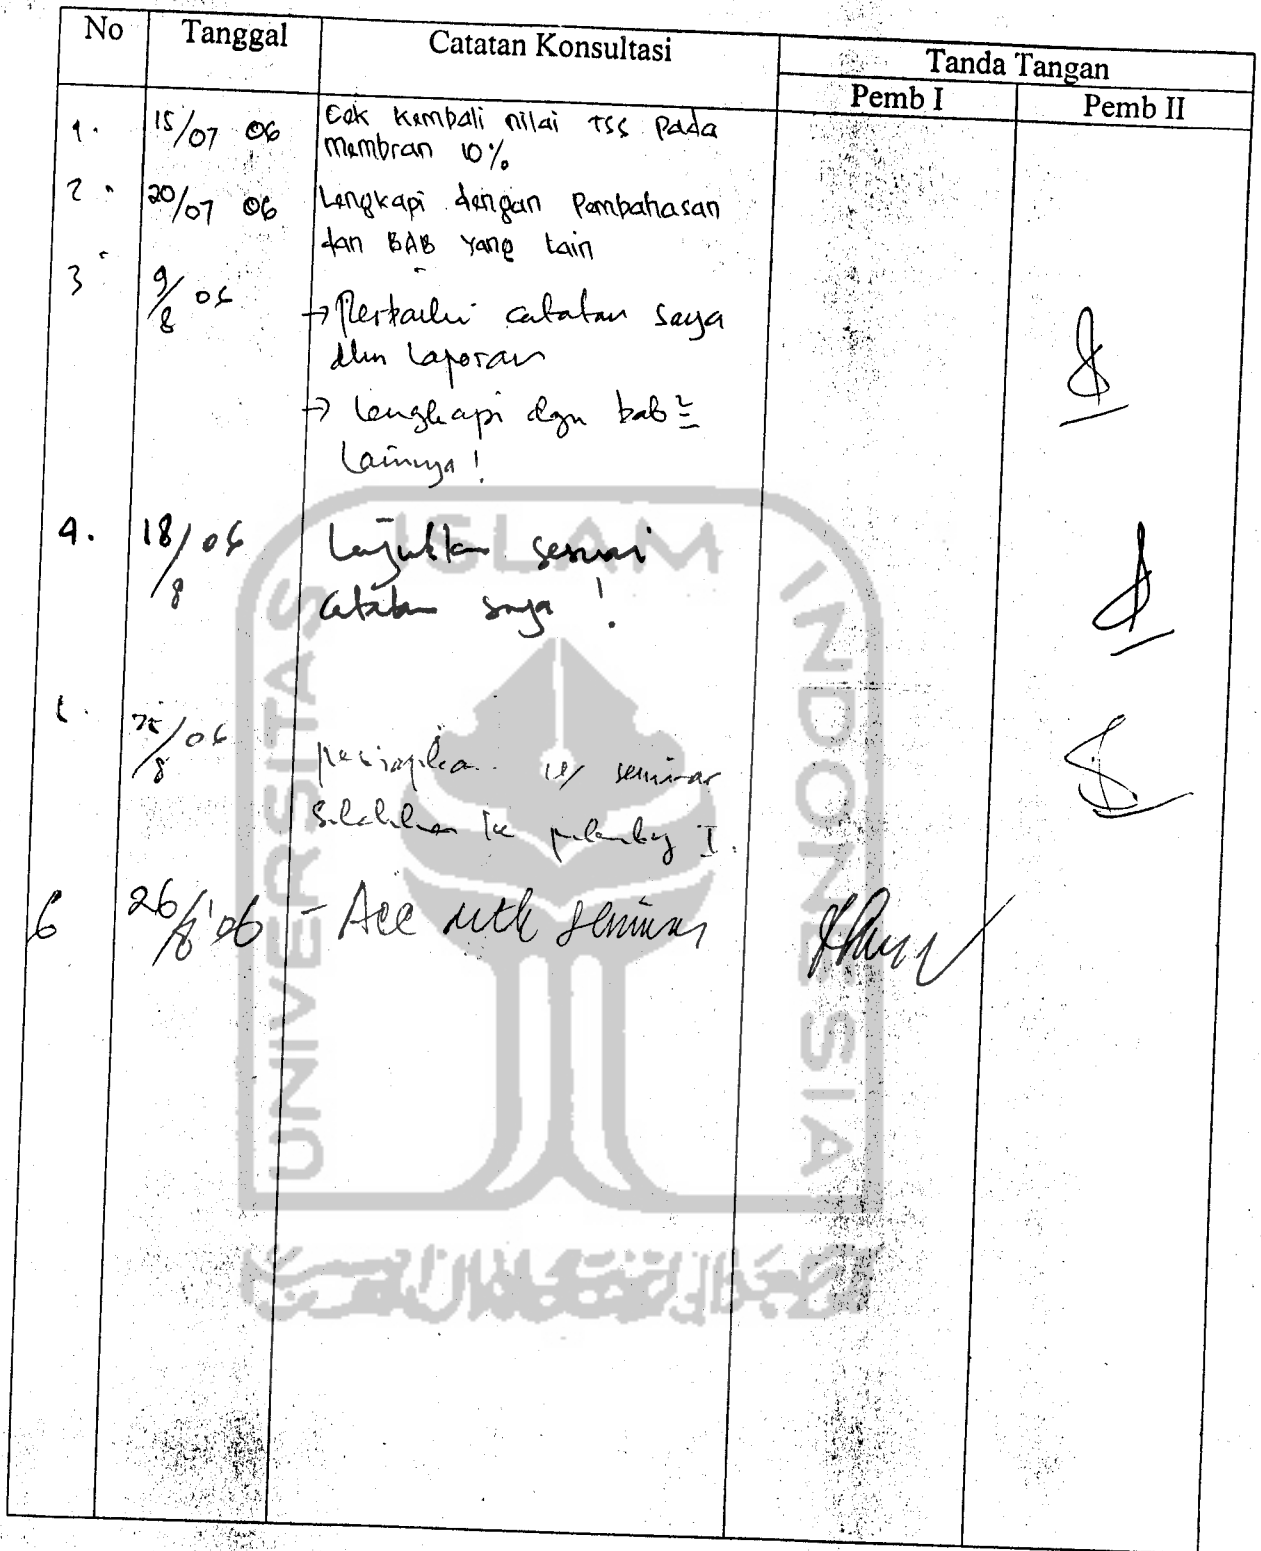 No Tanggal Catatan Konsultasi Tanda Tangan
Pemb I Pemb II
1. 15/07 06 Cek kembali nilai TSS pada
membran 10%
2. 20/07 06 Lengkapi dengan Pembahasan
dan BAB yang lain
3 9/8 06 → Perbaiki catatan saya
dlm Laporan
→ lengkapi dgn bab2
lainnya!
4. 18/8 06 Lanjutkan sesuai
catatan saya!
25/8 06 persiapkan u/ seminar
Silahkan ke I.
6 26/8'06 - Acc utk seminar
UNIVERSITAS ISLAM INDONESIA